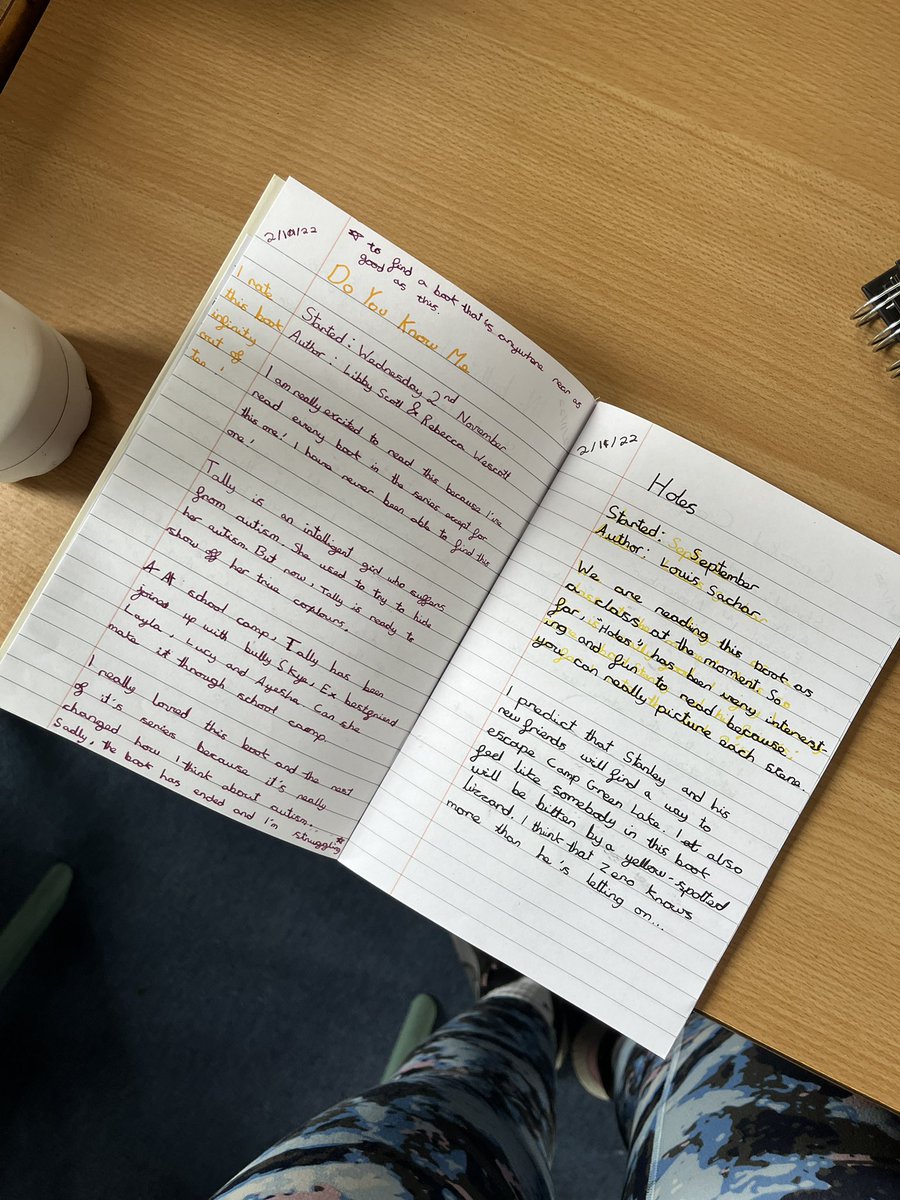 2/11/22
☆ to find a book that is anywhere near as
good as this.
Do You Know Me
I rate
this book
infinity
out of
ten!
Started: Wednesday 2nd November
Author: Libby Scott & Rebecca Wescott
I am really excited to read this because I've
read every book in the series except for
this one! I have never been able to find this
one!
Tally is an intelligent girl who suffers
from autism. She used to try to hide
her autism. But now, Tally is ready to
show off her true coulours.
At school camp, Tally has been
joined up with bully Skye, Ex bestfriend
Layla, Lucy and Ayesha. Can she
make it through school camp.
I really loved this book and the rest
of it's series because it's really
changed how I think about autism...
Sadly, the book has ended and I'm struggling ☆
2/11/22
Holes
Started: September
Author: Louis Sachar
We are reading this book as
a class at the moment. So
far, "Holes" has been very interest-
ing and fun to read because
you can really picture each scene.
I predict that Stanley and his
new friends will find a way to
escape Camp Green Lake. I also
feel like somebody in this book
will be bitten by a yellow-spotted
lizzard. I think that Zero knows
more than he's letting on...